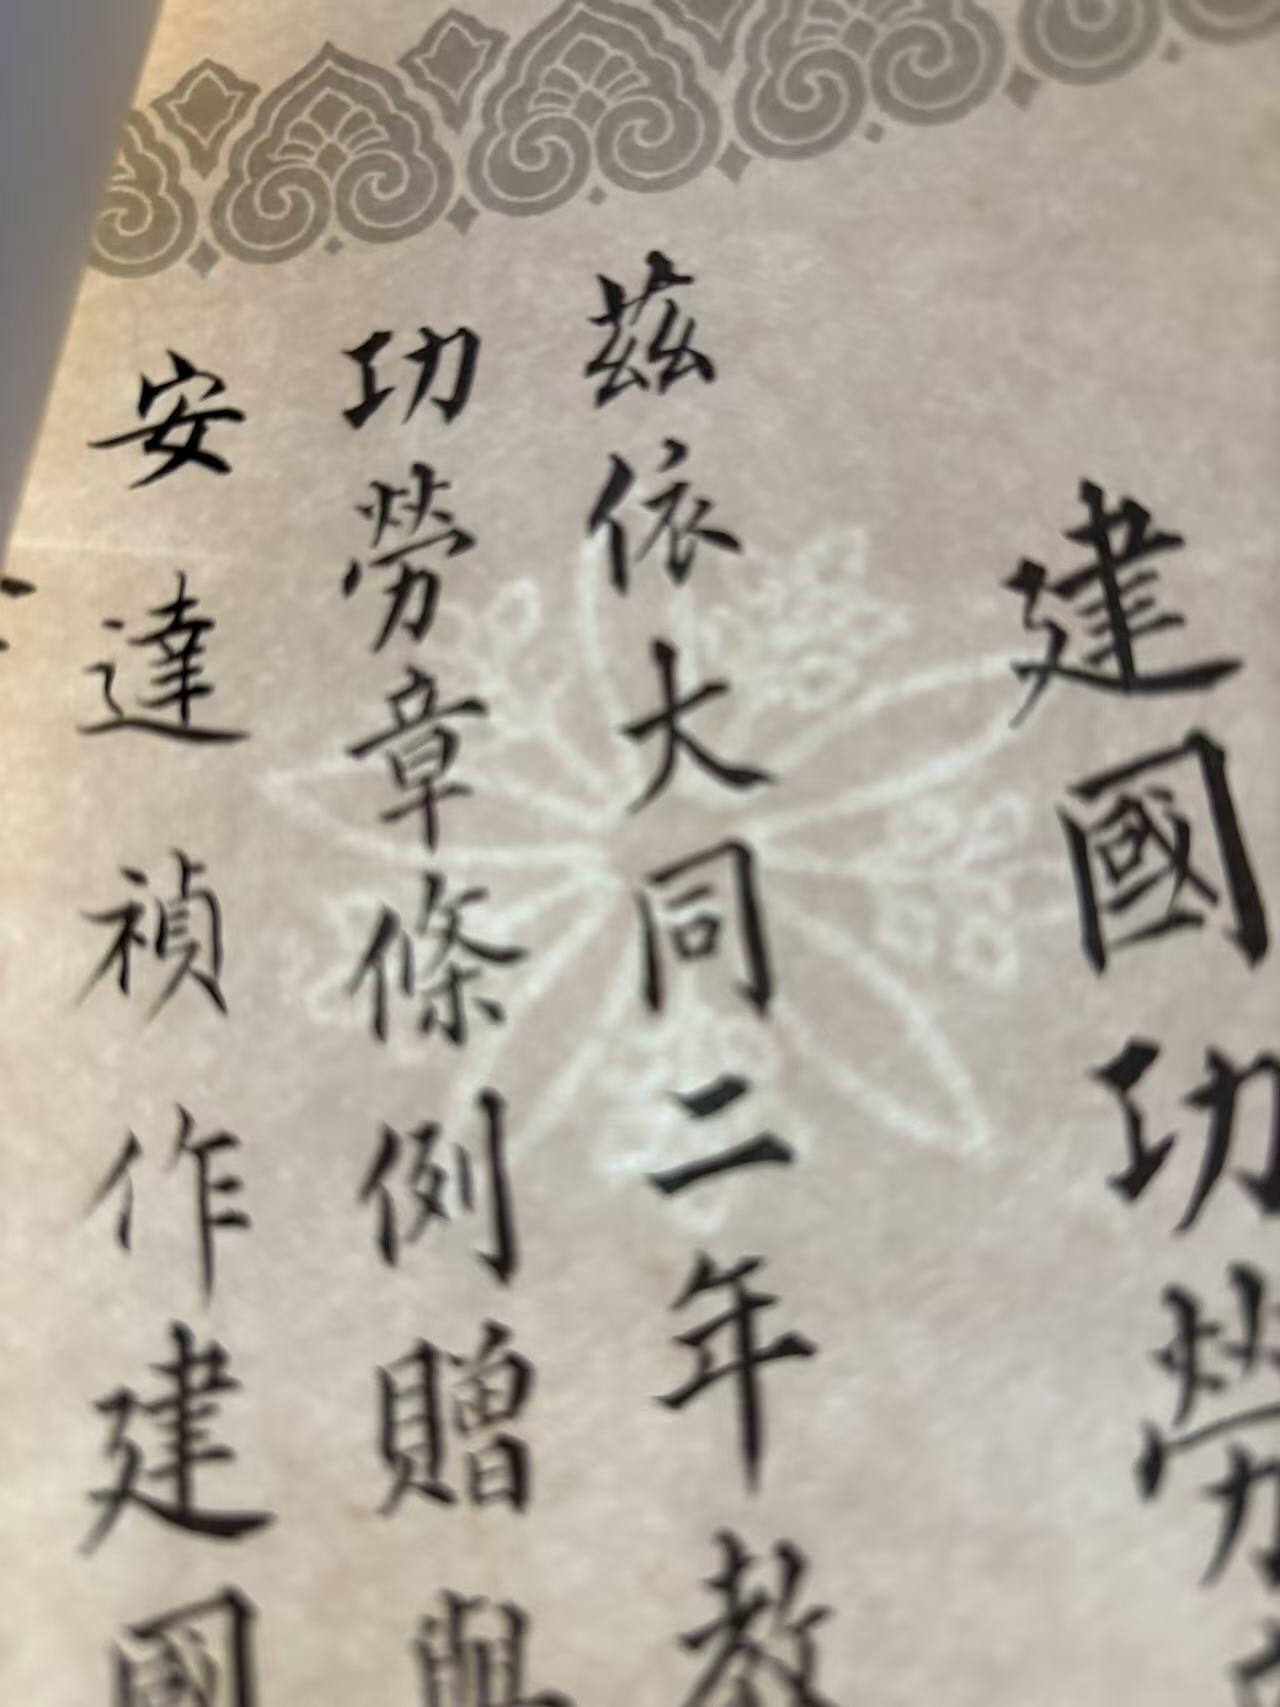 建國功勞
茲依大同二年教
功勞章條例贈與
安達禎作建國